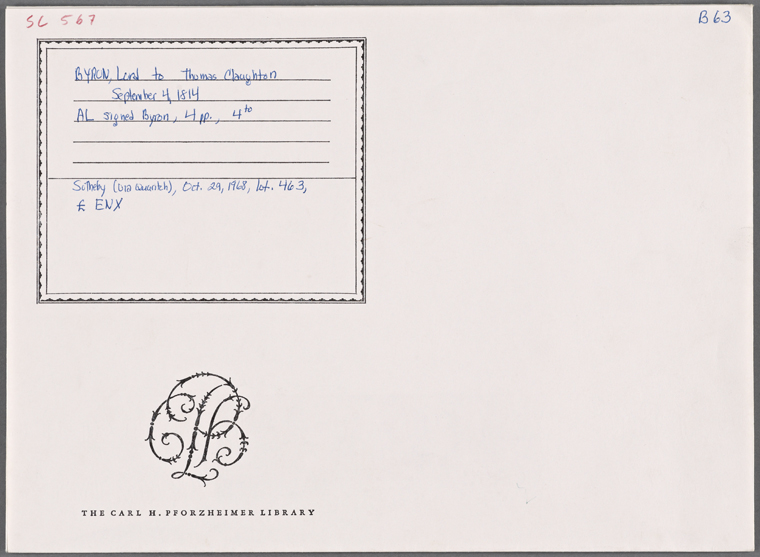 SC 567
B63
BYRON, Lord to Thomas Claughton
September 4, 1814
AL signed Byron, 4 pp., 4to
Sotheby (via Quaritch), Oct. 29, 1968, lot. 463,
£ ENX
THE CARL H. PFORZHEIMER LIBRARY